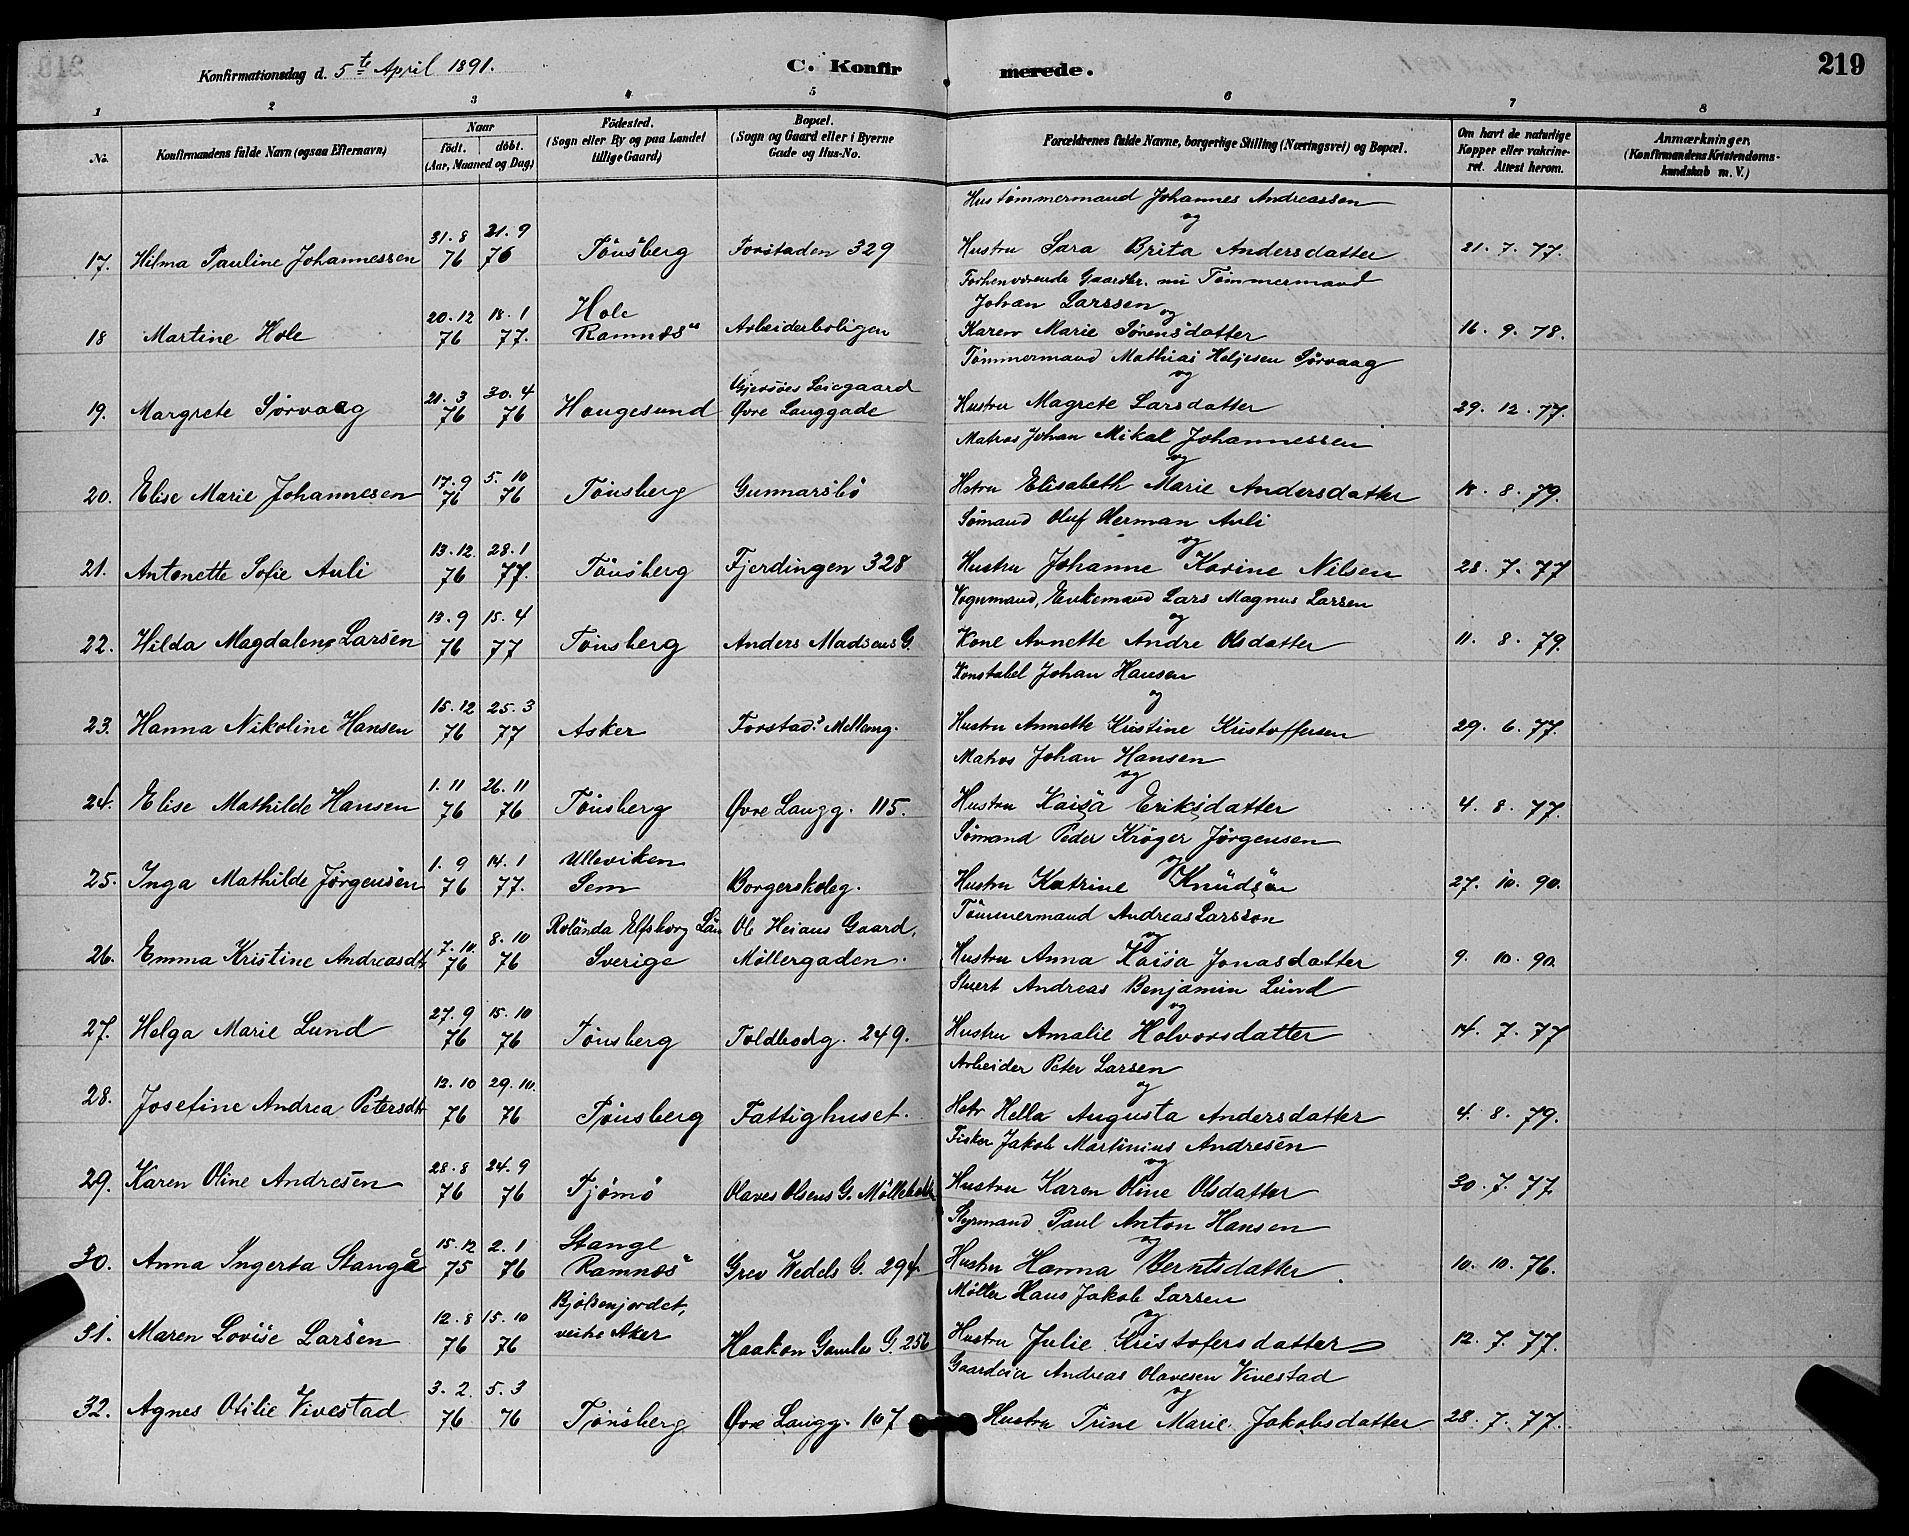 Konfirmationsdag d. 5te April 1891.
C. Konfirmerede.
219
1 2 3 4 5 6 7 8
No. Konfirmandens fulde Navn (ogsaa Efternavn) Naar födt. döbt. (Aar, Maaned og Dag) Födested. (Sogn eller By og paa Landet tillige Gaard) Bopæl. (Sogn og Gaard eller i Byerne Gade og Hus-No. Forældrenes fulde Navne, borgerlige Stilling (Næringsvei) og Bopæl. Om havt de naturlige Kopper eller vakcineret. Attest herom. Anmærkninger. (Konfirmandens Kristendomskundskab m. V.)
Hustömmermand Johannes Andreassen
og
17. Hilma Pauline Johannessen 31.8 76 21.9 76 Tönsberg Forstaden 329 Hustru Sara Brita Andersdatter 21. 7. 77.
Forhenværende Gaardbr. nu Tömmermand
Johan Larssen og
18 Martine Hole 20.12 76 18.1 77. Hole Ramnæs Arbeiderboligen Karen Marie Sörensdatter 16. 9. 78.
Tømmermand Mathias Heljesen Sørvaag
og
19. Margrete Sørvaag 21.3 76 30.4 76 Haugesund Gjersöes Leiegaard Øvre Langgade Hustru Magrete Larsdatter 29. 12. 77.
Matros Johan Mikal Johannessen
og
20. Elise Marie Johannesen 17.9 76 5.10 76 Tönsberg Gunnarsbö Hstru Elisabeth Marie Andersdatter 18. 8. 79.
Sømand Oluf Herman Auli
og
21. Antonette Sofie Auli 13.12 76 28.1 77. Tönsberg Fjerdingen 328 Hustru Johanne Karine Nilsen 28. 7. 77
Vognmand, Enkemand Lars Magnus Larsen
og
22. Hilda Magdalene Larsen 13.9 76 15.4 77 Tönsberg Anders Madsens G. Kone Annette Andre Olsdatter 11. 8. 79.
Konstabel Johan Hansen
og
23. Hanna Nikoline Hansen 15.12 76 25.3 77 Asker Forstad. Mellemg. Hustru Annette Kristine Kristoffersen 29. 6. 77.
Matros Johan Hansen
og
24. Elise Mathilde Hansen 1.11 76 26.11 76 Tönsberg Øvre Langg. 115. Hustru Kaisa Eriksdatter 4. 8. 77.
Sömand Peder Krøger Jørgensen
og
25. Inga Mathilde Jørgensen 1.9 76 14.1 77. Ulleviken Sem Borgerskoleg. Hustru Katrine Knudsön 27. 10. 90.
Tömmermand Andreas Larsson
og
26. Emma Kristine Andreasdtr 7.10. 76 8.10 76 Rolända Elfsborg Län Sverige Ole Heians Gaard, Møllergaden. Hustru Anna Kaisa Jonasdatter 9. 10. 90.
Stuert Andreas Benjamin Lund
og
27. Helga Marie Lund 27.9 76 15.10 76 Tönsberg Toldbodg. 249. Hustru Amalie Halvorsdatter 14. 7. 77
Arbeider Peter Larsen
og
28. Josefine Andrea Petersdtr 12.10 76 29.10. 76 Tønsberg Fattighuset. Hstr Hella Augusta Andersdatter 4. 8. 79.
Fisker Jakob Martinius Andresen
og
29. Karen Oline Andresen 28.8 76 24.9 76 Tjömö Olaves Olsens G. Møllebakk Hustru Karen Oline Olsdatter 30. 7. 77.
Styrmand Paul Anton Hansen
og
30. Anna Ingerta Stange 15.12 75 2.1 76 Stange Ramnæs Grev Wedels G. 294 Hustru Hanna Berntsdatter 10. 10. 76.
Møller Hans Jakob Larsen
og
31. Maren Lovise Larsen 12.8 76 15.10 76 Bjölsenjordet, vestre Aker Haakon Gamles G. 256 Hustru Julie Kristofersdatter 12. 7. 77.
Gaardeier Andreas Olavesen Vivestad
og
32. Agnes Otilie Vivestad 3.2. 76 5.3 76 Tjönsberg Øvre Langg. 107 Hustru Trine Marie Jakobsdatter 28. 7. 77.